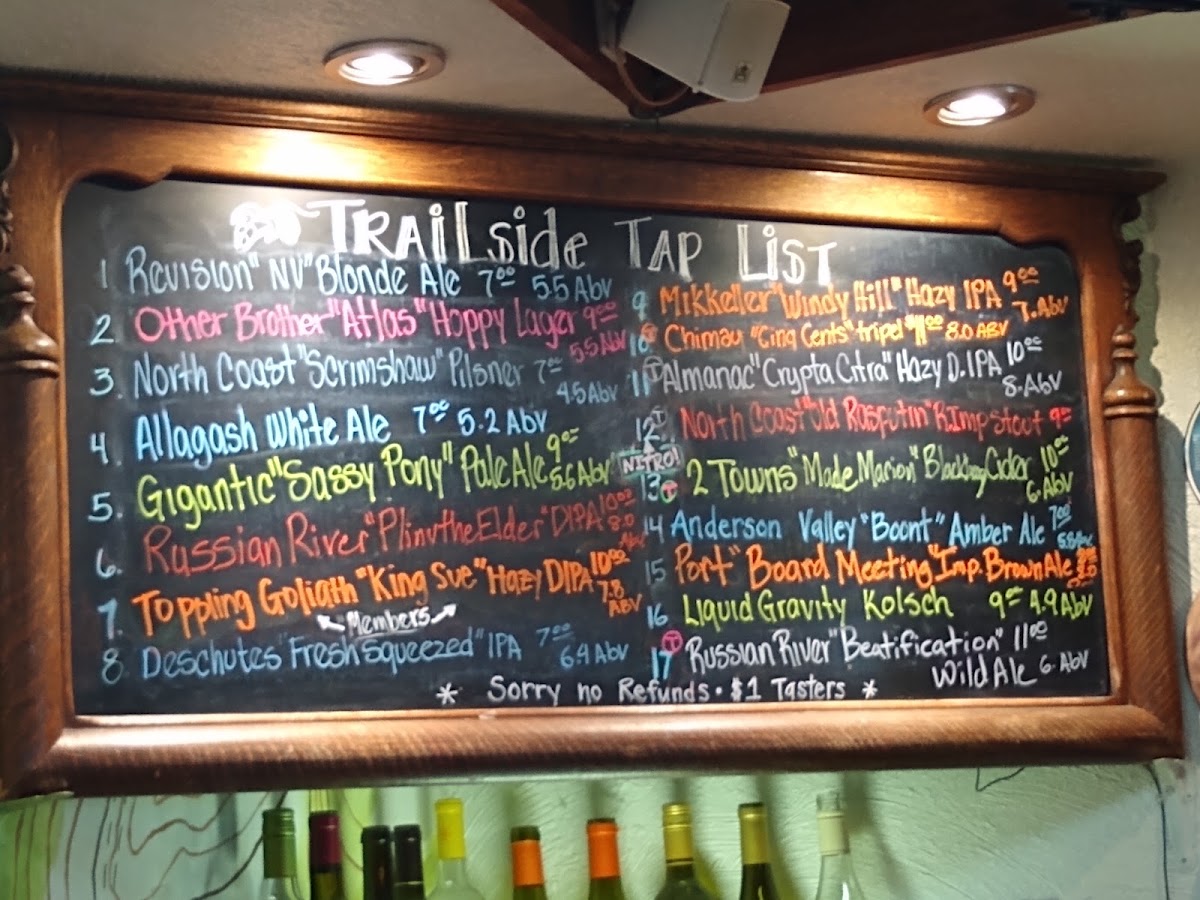 TRAiLside TAP LiST
1 Revision "NV" Blonde Ale 7⁰⁰ 5.5 Abv
2. Other Brother "Atlas" Hoppy Lager 9⁰⁰ 5.5 ABV
3. North Coast "Scrimshaw" Pilsner 7⁰⁰ 4.5 Abv
4 Allagash White Ale 7⁰⁰ 5.2 Abv
5. Gigantic "Sassy Pony" Pale Ale 9⁰⁰ 5.6 Abv
6. Russian River "PlinytheElder" DIPA 10⁰⁰ 8.0 Abv
7. Toppling Goliath "King Sue" Hazy DIPA 10⁰⁰ 7.8 ABV
Members
8. Deschutes "Fresh Squeezed" IPA 7⁰⁰ 6.4 Abv
9 Mikkeller "Windy Hill" Hazy IPA 9⁰⁰ 7. Abv
10 Chimau "Cinq Cents" tripel 8.0 ABV
11 T Almanac "Crypta Citra" Hazy D. IPA 10⁰⁰ 8. Abv
12 T North Coast "Old Rasputin" R.Imp Stout 9⁰⁰
NITRO!
13 T 2 Towns "Made Marion" Blackberry Cider 10⁰⁰ 6. Abv
14 Anderson Valley "Boont" Amber Ale 7⁰⁰ 5.8 Abv
15 Port "Board Meeting" Imp. Brown Ale
16 Liquid Gravity Kolsch 9⁰⁰ 4.9 Abv
17 T Russian River "Beatification" 11⁰⁰
Wild Ale 6. Abv
* Sorry no Refunds · $1 Tasters *